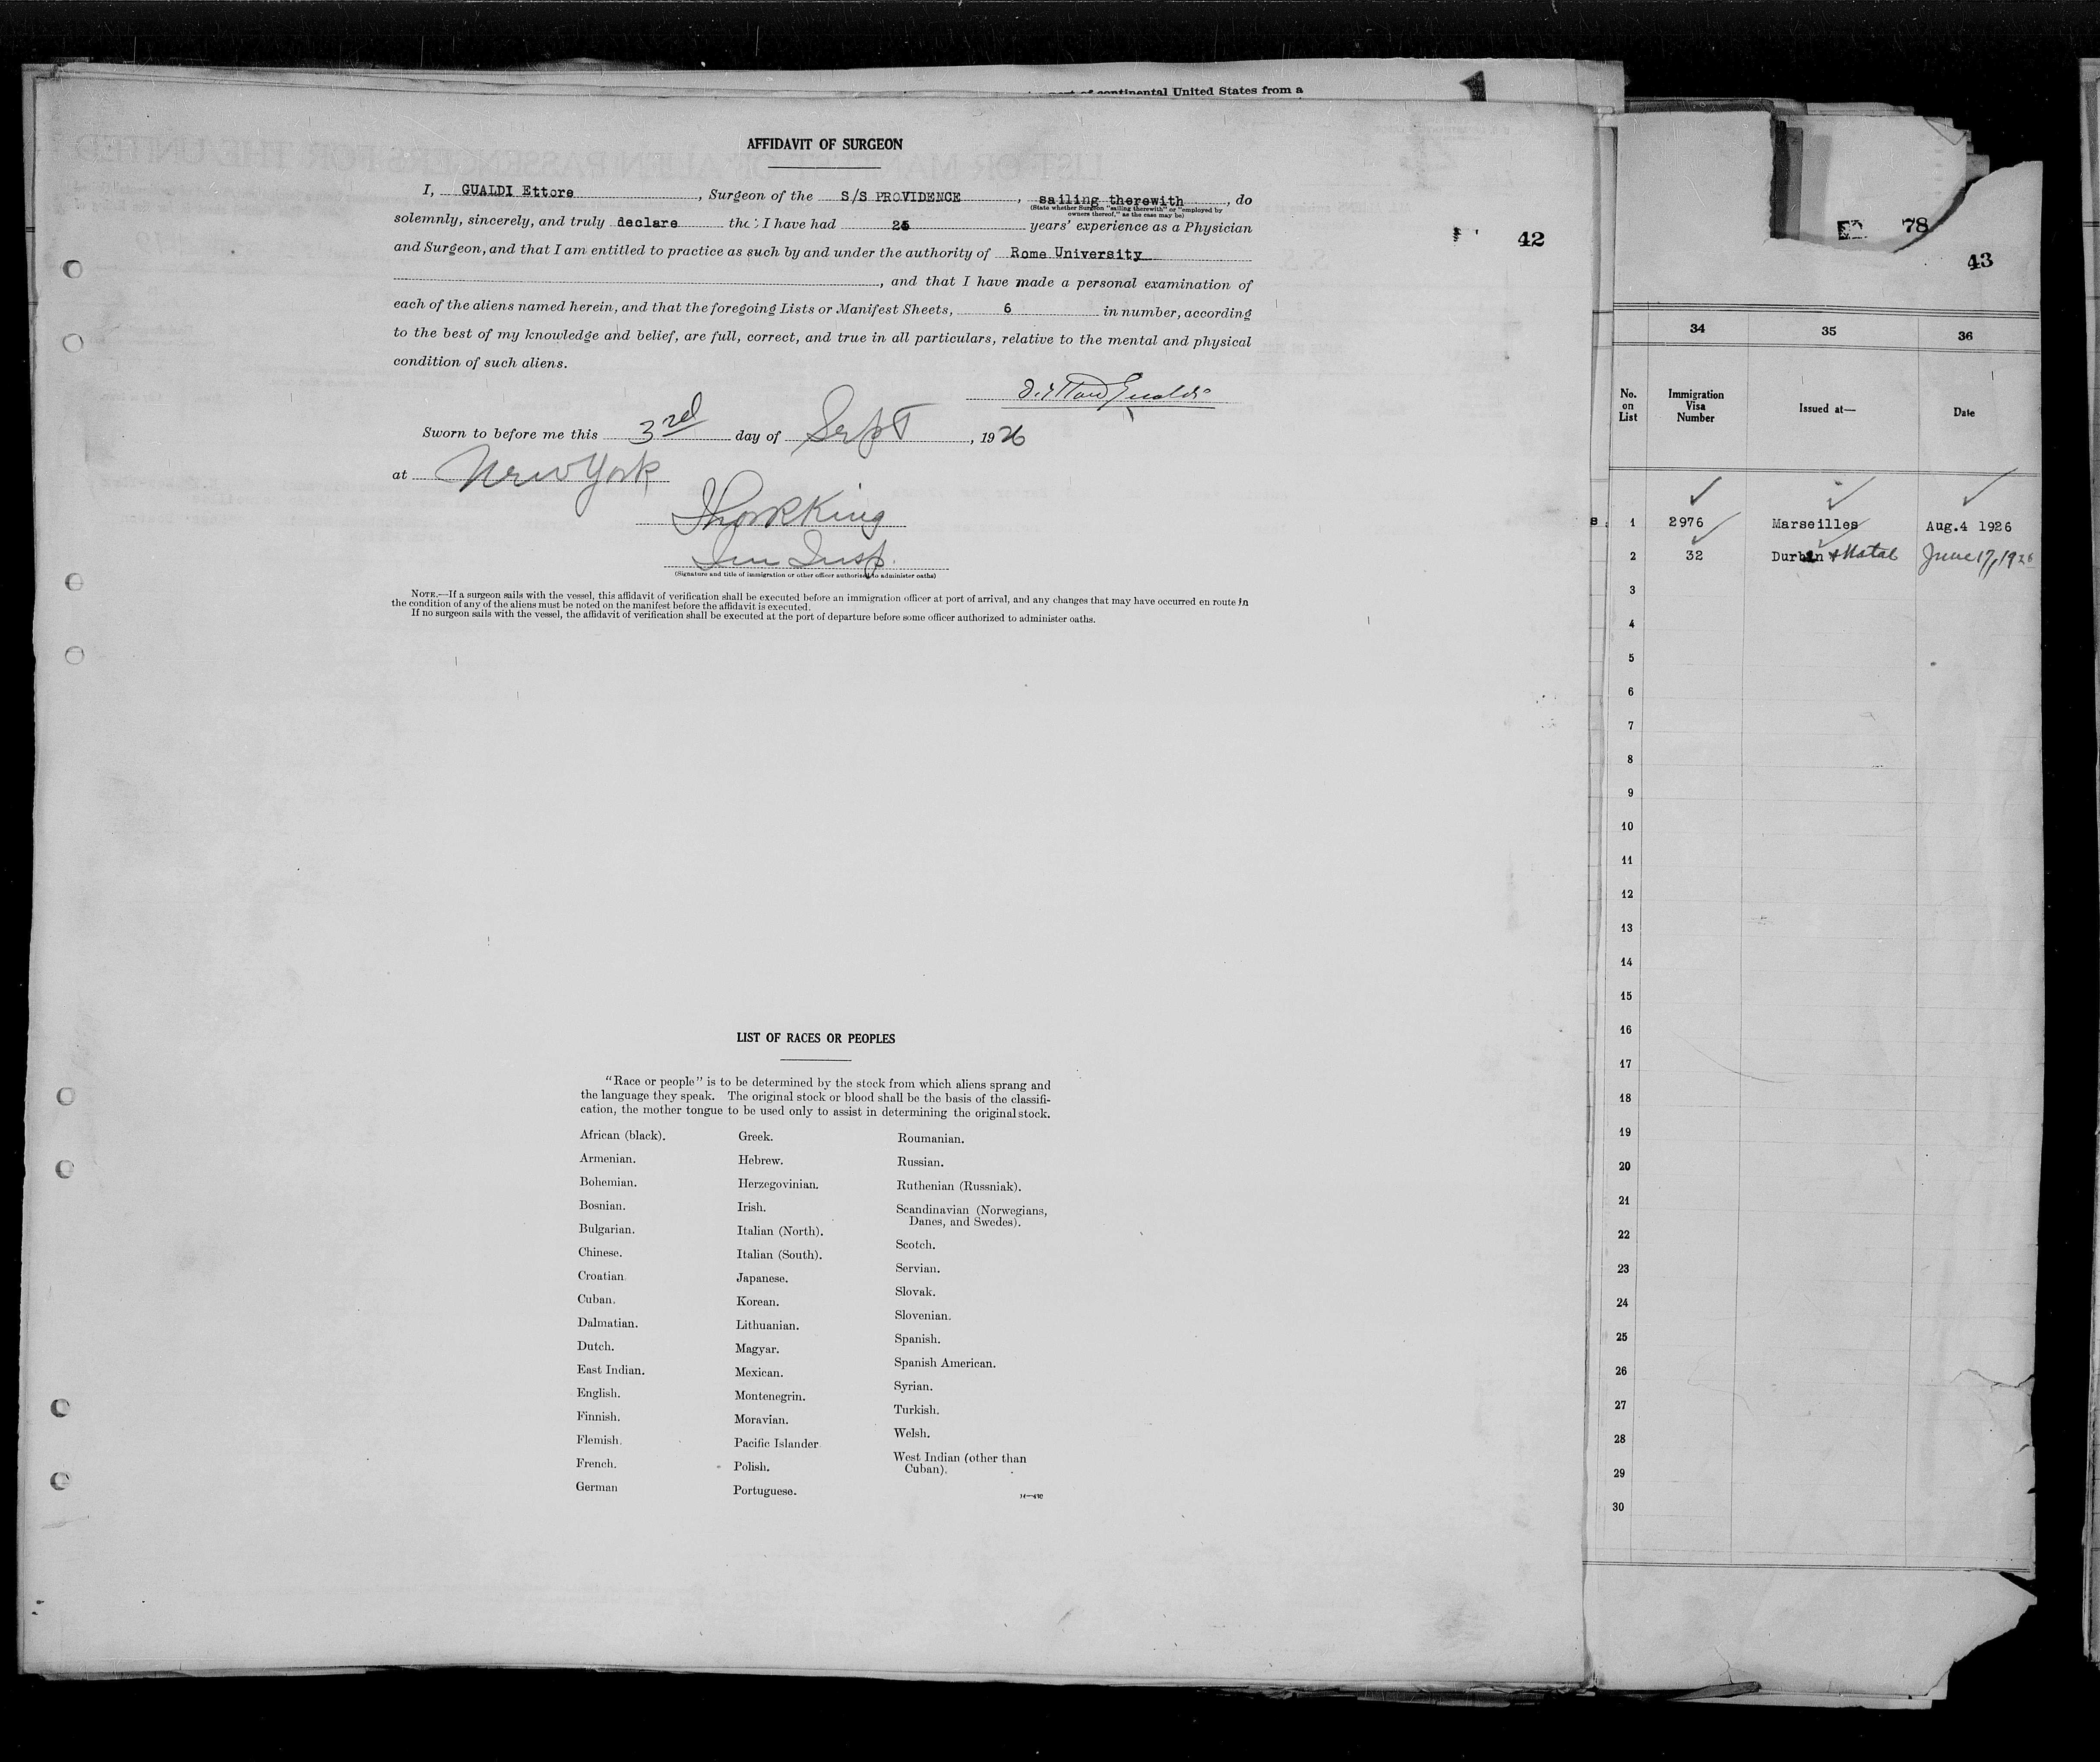 continental United States from a
AFFIDAVIT OF SURGEON
I, GUALDI Ettore, Surgeon of the S/S PROVIDENCE, sailing therewith, do
(State whether Surgeon "sailing therewith" or "employed by
owners thereof," as the case may be)
solemnly, sincerely, and truly declare tha I have had years' experience as a Physician
and Surgeon, and that I am entitled to practice as such by and under the authority of Rome University
, and that I have made a personal examination of
each of the aliens named herein, and that the foregoing Lists or Manifest Sheets, 6 in number, according
to the best of my knowledge and belief, are full, correct, and true in all particulars, relative to the mental and physical
condition of such aliens.
Sworn to before me this 3rd day of Sept, 1926
at New York
King
Imm Insp.
(Signature and title of immigration or other officer authorized to administer oaths)
NOTE.—If a surgeon sails with the vessel, this affidavit of verification shall be executed before an immigration officer at port of arrival, and any changes that may have occurred en route in
the condition of any of the aliens must be noted on the manifest before the affidavit is executed.
If no surgeon sails with the vessel, the affidavit of verification shall be executed at the port of departure before some officer authorized to administer oaths.
42
LIST OF RACES OR PEOPLES
"Race or people" is to be determined by the stock from which aliens sprang and
the language they speak. The original stock or blood shall be the basis of the classifi-
cation, the mother tongue to be used only to assist in determining the original stock.
African (black).
Armenian.
Bohemian.
Bosnian.
Bulgarian.
Chinese.
Croatian.
Cuban.
Dalmatian.
Dutch.
East Indian.
English.
Finnish.
Flemish.
French.
German
Greek.
Hebrew.
Herzegovinian.
Irish.
Italian (North).
Italian (South).
Japanese.
Korean.
Lithuanian.
Magyar.
Mexican.
Montenegrin.
Moravian.
Pacific Islander
Polish.
Portuguese.
Roumanian.
Russian.
Ruthenian (Russniak).
Scandinavian (Norwegians,
Danes, and Swedes).
Scotch.
Servian.
Slovak.
Slovenian.
Spanish.
Spanish American.
Syrian.
Turkish.
Welsh.
West Indian (other than
Cuban).
78
43
34 35 36
No. on List
Immigration Visa Number
Issued at—
Date
1 2976 Marseilles Aug.4 1926
2 32 Durban Natal June 17, 1926
3
4
5
6
7
8
9
10
11
12
13
14
15
16
17
18
19
20
21
22
23
24
25
26
27
28
29
30